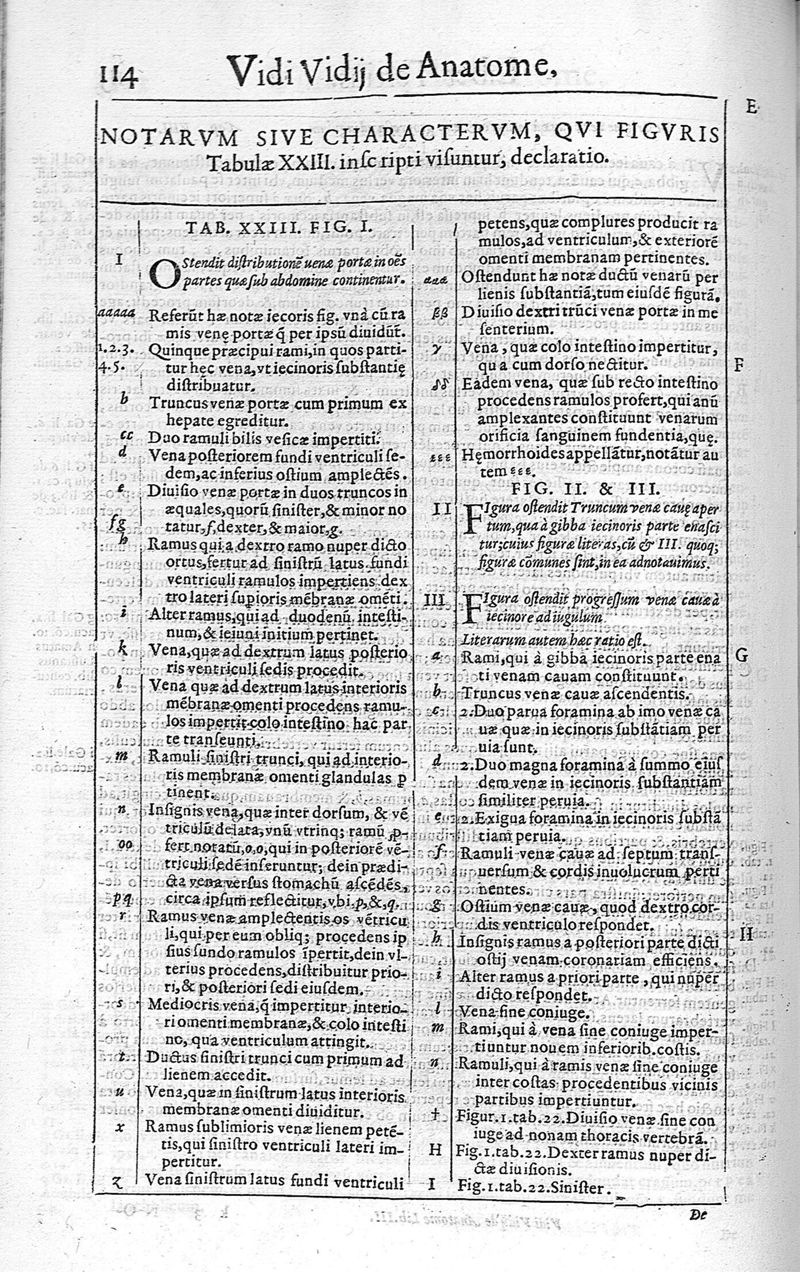 114 Vidi Vidij de Anatome,
E
NOTARVM SIVE CHARACTERVM, QVI FIGVRIS
Tabulæ XXIII. inscripti visuntur, declaratio.
TAB. XXIII. FIG. I.
I Ostendit distributionē uenæ portæ in oēs
partes quæ sub abdomine continentur.
aaaaa Referūt hæ notæ iecoris fig. vnà cū ra
mis venę portæ q̃ per ipsū diuidūt.
1.2.3. Quinque præcipui rami, in quos parti-
4.5. tur hęc vena, vt iecinoris substantię
distribuatur.
b Truncus venæ portæ cum primum ex
hepate egreditur.
cc Duo ramuli bilis vesicæ impertiti.
d Vena posteriorem fundi ventriculi se-
dem, ac inferius ostium amplectēs.
e Diuisio venæ portæ in duos truncos in
æquales, quorū sinister, & minor no
fg tatur, f, dexter, & maior, g.
h Ramus qui a dextro ramo nuper dicto
ortus, fertur ad sinistrū latus fundi
ventriculi ramulos impertiens dex
tro lateri supioris mēbranæ omēti.
i Alter ramus, qui ad duodenū, intesti-
num, & ieiuni initium pertinet.
k Vena, quæ ad dextrum latus posterio
ris ventriculi sedis procedit.
l Vena quæ ad dextrum latus interioris
mēbranæ omenti procedens ramu-
los impertit colo intestino hac par
te transeunti.
m Ramuli sinistri trunci, qui ad interio-
ris membranæ omenti glandulas p
tinent.
n Insignis vena, quæ inter dorsum, & vē
triculū delata, vnū vtrinq; ramū p-
oo fert notatū, o, o, qui in posteriorē vē-
triculi sedē inseruntur; dein prædi-
cta vena versus stomachū ascēdēs,
pq circa ipsum reflectitur, vbi p, &, q.
r Ramus venæ amplectentis os vētricu
li, qui per eum obliq; procedens ip
sius fundo ramulos īpertit, dein vl-
terius procedens, distribuitur prio-
ri, & posteriori sedi eiusdem.
s Mediocris vena, q̃ impertitur interio-
ri omenti membranæ, & colo intesti
no, qua ventriculum attingit.
t Ductus sinistri trunci cum primum ad
lienem accedit.
u Vena, quæ in sinistrum latus interioris
membranæ omenti diuiditur.
x Ramus sublimioris venæ lienem petē-
tis, qui sinistro ventriculi lateri im-
pertitur.
z Vena sinistrum latus fundi ventriculi
petens, quæ complures producit ra
mulos, ad ventriculum, & exteriorē
omenti membranam pertinentes.
ααα Ostendunt hæ notæ ductū venarū per
lienis substantiā, tum eiusdē figurā.
ββ Diuisio dextri trūci venæ portæ in me
senterium.
γ Vena, quæ colo intestino impertitur,
qua cum dorso nectitur.
F
δδ Eadem vena, quæ sub recto intestino
procedens ramulos profert, qui anū
amplexantes constituunt venarum
orificia sanguinem fundentia, quę.
εεε Hęmorrhoides appellātur, notātur au
tem εεε.
FIG. II. & III.
II Figura ostendit Truncum venæ cauę aper
tum, qua à gibba iecinoris parte enasci
tur; cuius figuræ literas, cū & III. quoq;
figuræ cōmunes sint, in ea adnotauimus.
III Figura ostendit progressum venæ cauæ à
iecinore ad iugulum.
Literarum autem hæc ratio est.
a Rami, qui à gibba iecinoris parte ena
G
ti venam cauam constituunt.
b Truncus venæ cauæ ascendentis.
c 2. Duo parua foramina ab imo venæ ca
uæ quæ in iecinoris substātiam per
uia sunt.
d 2. Duo magna foramina à summo eius
dem venæ in iecinoris substantiam
similiter peruia.
e 2. Exigua foramina in iecinoris substā
tiam peruia.
f Ramuli venæ cauæ ad septum trans-
uersum & cordis inuolucrum perti
nentes.
g Ostium venæ cauæ, quod dextro cor-
dis ventriculo respondet.
H
h Insignis ramus a posteriori parte dicti
ostij venam coronariam efficiens.
i Alter ramus a priori parte, qui nuper
dicto respondet.
l Vena sine coniuge.
m Rami, qui à vena sine coniuge imper-
tiuntur nouem inferiorib. costis.
n Ramuli, qui à ramis venæ sine coniuge
inter costas procedentibus vicinis
partibus impertiuntur.
† Figur. 1. tab. 22. Diuisio venæ sine con
iuge ad nonam thoracis vertebrā.
H Fig. 1. tab. 22. Dexter ramus nuper di-
ctæ diuisionis.
I Fig. 1. tab. 22. Sinister.
De